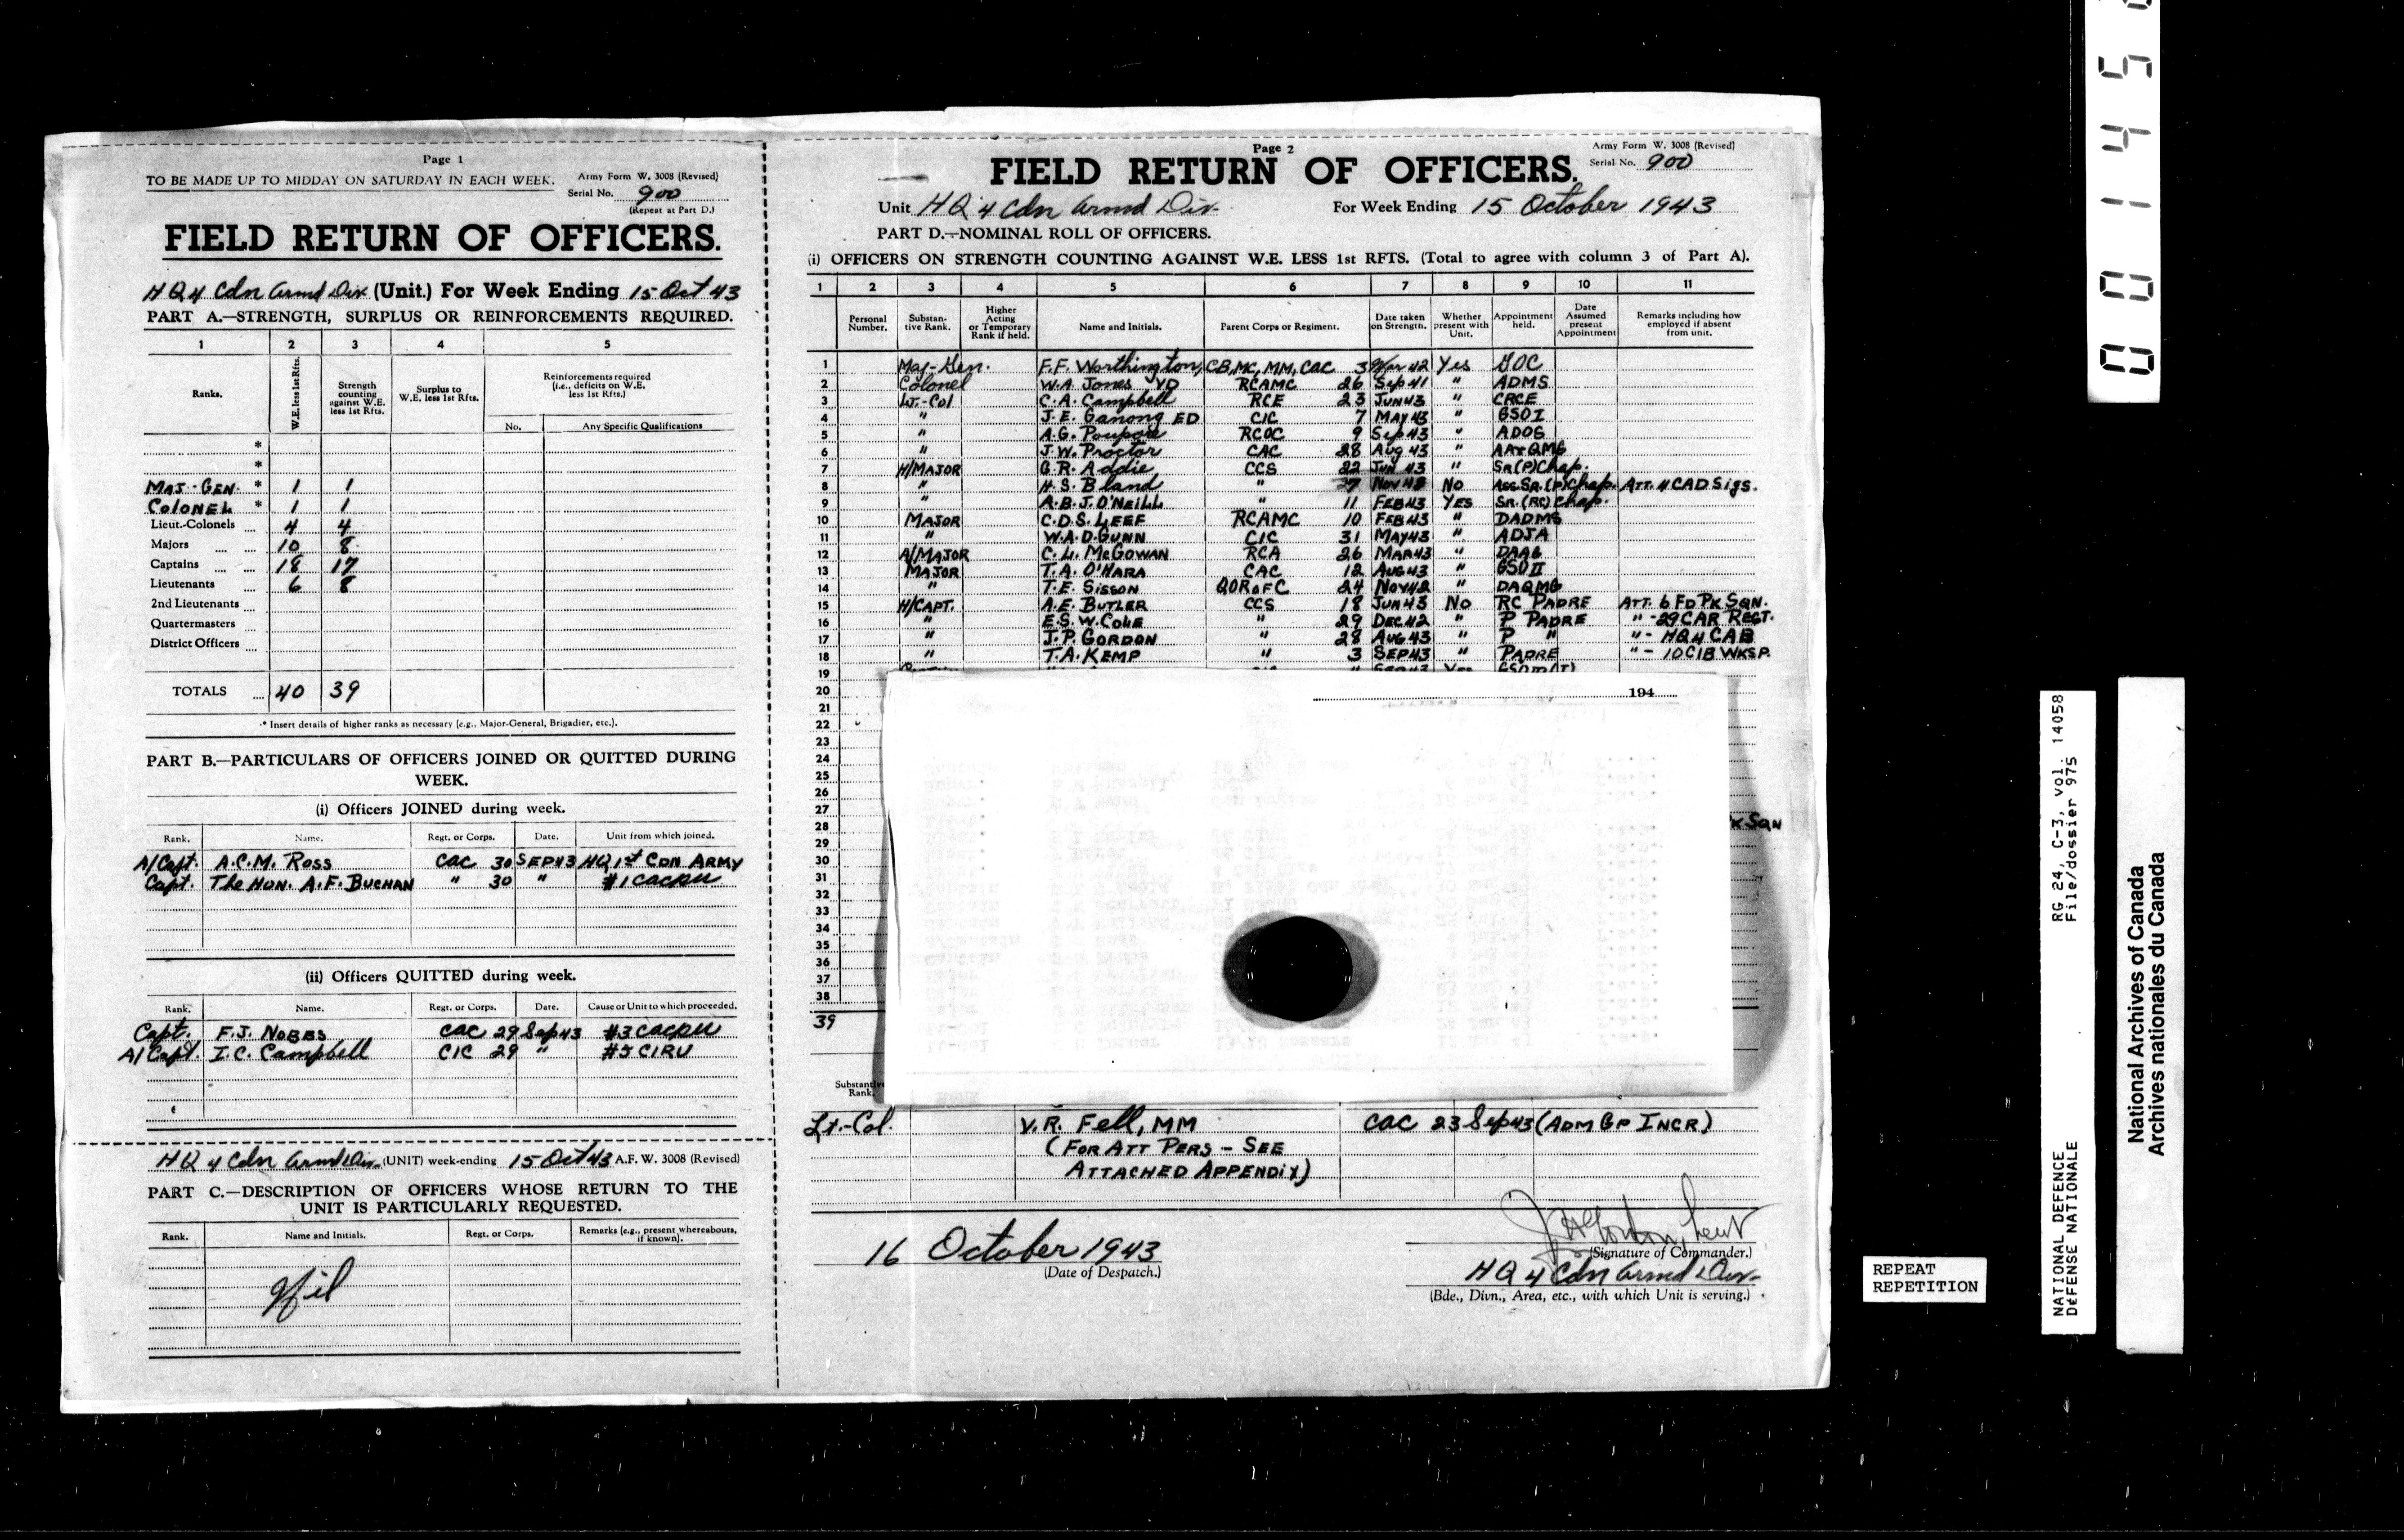 Page 1
TO BE MADE UP TO MIDDAY ON SATURDAY IN EACH WEEK.
Army Form W. 3008 (Revised)
Serial No. 900
(Repeat at Part D.)
FIELD RETURN OF OFFICERS.
HQ 4 Cdn Armd Div (Unit.) For Week Ending 15 Oct 43
PART A.—STRENGTH, SURPLUS OR REINFORCEMENTS REQUIRED.
1 2 3 4 5
Ranks.
W.E. less 1st Rfts.
Strength counting against W.E. less 1st Rfts.
Surplus to W.E. less 1st Rfts.
Reinforcements required (i.e., deficits on W.E. less 1st Rfts.)
No. Any Specific Qualifications
*
*
MAJ-GEN. * 1 1
COLONEL * 1 1
Lieut.-Colonels 4 4
Majors 10 8
Captains 18 17
Lieutenants 6 8
2nd Lieutenants
Quartermasters
District Officers
TOTALS 40 39
* Insert details of higher ranks as necessary (e.g., Major-General, Brigadier, etc.).
PART B.—PARTICULARS OF OFFICERS JOINED OR QUITTED DURING
WEEK.
(i) Officers JOINED during week.
Rank. Name. Regt. or Corps. Date. Unit from which joined.
A/Capt. A.C.M. Ross CAC 30 SEP43 HQ 1st CDN ARMY
Capt. The HON. A.F. BUCHAN " 30 " #1 CACRU
(ii) Officers QUITTED during week.
Rank. Name. Regt. or Corps. Date. Cause or Unit to which proceeded.
Capt. F.J. NOBBS CAC 29 Sep43 #3 CACRU
A/Capt. I.C. Campbell CIC 29 " #5 CIRU
HQ 4 Cdn Armd Div (UNIT) week-ending 15 Oct 43 A.F.W. 3008 (Revised)
PART C.—DESCRIPTION OF OFFICERS WHOSE RETURN TO THE
UNIT IS PARTICULARLY REQUESTED.
Rank. Name and Initials. Regt. or Corps. Remarks (e.g., present whereabouts, if known).
Nil
Page 2
Army Form W. 3008 (Revised)
Serial No. 900
FIELD RETURN OF OFFICERS.
Unit HQ 4 Cdn Armd Div. For Week Ending 15 October 1943
PART D.—NOMINAL ROLL OF OFFICERS.
(i) OFFICERS ON STRENGTH COUNTING AGAINST W.E. LESS 1st RFTS. (Total to agree with column 3 of Part A).
1 2 3 4 5 6 7 8 9 10 11
Personal Number.
Substantive Rank.
Higher Acting or Temporary Rank if held.
Name and Initials.
Parent Corps or Regiment.
Date taken on Strength.
Whether present with Unit.
Appointment held.
Date Assumed present Appointment
Remarks including how employed if absent from unit.
1 Maj-Gen. F.F. Worthington, CB, MC, MM, CAC 3 Mar 42 Yes GOC
2 Colonel W.A. Jones VD RCAMC 26 Sep 41 " ADMS
3 Lt-Col C.A. Campbell RCE 23 JUN43 " CRCE
4 " J.E. Ganong ED CIC 7 MAY43 " GSO I
5 " A.G. Poupore RCOC 9 Sep43 " ADOS
6 " J.W. Proctor CAC 28 Aug 43 " AA+QMG
7 H/MAJOR G.R. Addie CCS 22 JUN 43 " SR(P)Chap.
8 " H.S. Bland " 27 Nov No Ass.SR.(P)Chap. ATT. 4 CAD Sigs.
9 " A.B.J. O'NEILL " 11 FEB43 YES SR.(RC) Chap.
10 MAJOR C.D.S. LEEF RCAMC 10 FEB43 " DADMS
11 " W.A.D. GUNN CIC 31 MAY43 " ADJA
12 A/MAJOR C.L. McGOWAN RCA 26 MAR43 " DAAG
13 MAJOR T.A. O'HARA CAC 12 AUG43 " GSO II
14 " T.E. SISSON QOR of C 24 NOV42 " DAQMG
15 H/CAPT. A.E. BUTLER CCS 18 JUN43 No RC PADRE ATT. 6 FD PK SQN.
16 " E.S.W. COLE " 29 DEC42 " P PADRE " -29 CAR REGT.
17 " J.P. GORDON " 28 AUG43 " P " " - HQ 4 CAB
18 " T.A. KEMP " 3 SEP43 " PADRE " - 10 CIB WKSP.
19
20
21
22
23
24
25
26
27
28 K SQN
29
30
31
32
33
34
35
36
37
38
39
194
Substantive Rank.
Lt.-Col. V.R. Fell, MM CAC 23 Sep43 (ADM GP INCR)
(FOR ATT PERS - SEE
ATTACHED APPENDIX)
16 October 1943
(Date of Despatch.)
Lieut
(Signature of Commander.)
HQ 4 Cdn Armd Div.
(Bde., Divn., Area, etc., with which Unit is serving.)
REPEAT
REPETITION
NATIONAL DEFENCE RG 24, C-3, vol. 14058
DÉFENSE NATIONALE File/dossier 975
National Archives of Canada
Archives nationales du Canada